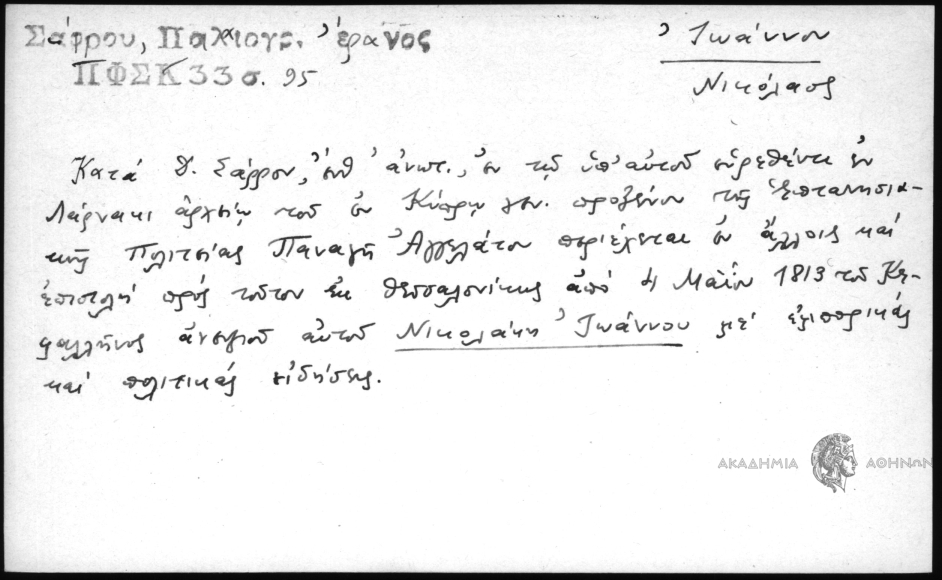 Σάρρου, Παλαιογρ. ἔρανος
ΠΦΣΚ 33 σ. 95
Ἰωάννου
Νικόλαος
Κατὰ Δ. Σάρρον, ἔνθ' ἀνωτ., ἐν τῷ ὑπ' αὐτοῦ εὑρεθέντι ἐν
Λάρνακι ἀρχείῳ τοῦ ἐν Κύπρῳ γεν. προξένου τῆς Ἑπτανησια-
κῆς Πολιτείας Παναγῆ Ἀγγελάτου περιέχεται ἐν ἄλλοις καὶ
ἐπιστολὴ πρὸς τοῦτον ἐκ Θεσσαλονίκης ἀπὸ 4 Μαΐου 1813 τοῦ Κε-
φαλλῆνος ἀνεψιοῦ αὐτοῦ Νικολάκη Ἰωάννου μὲ ἐμπορικὰς
καὶ πολιτικὰς εἰδήσεις.
ΑΚΑΔΗΜΙΑ ΑΘΗΝΩΝ